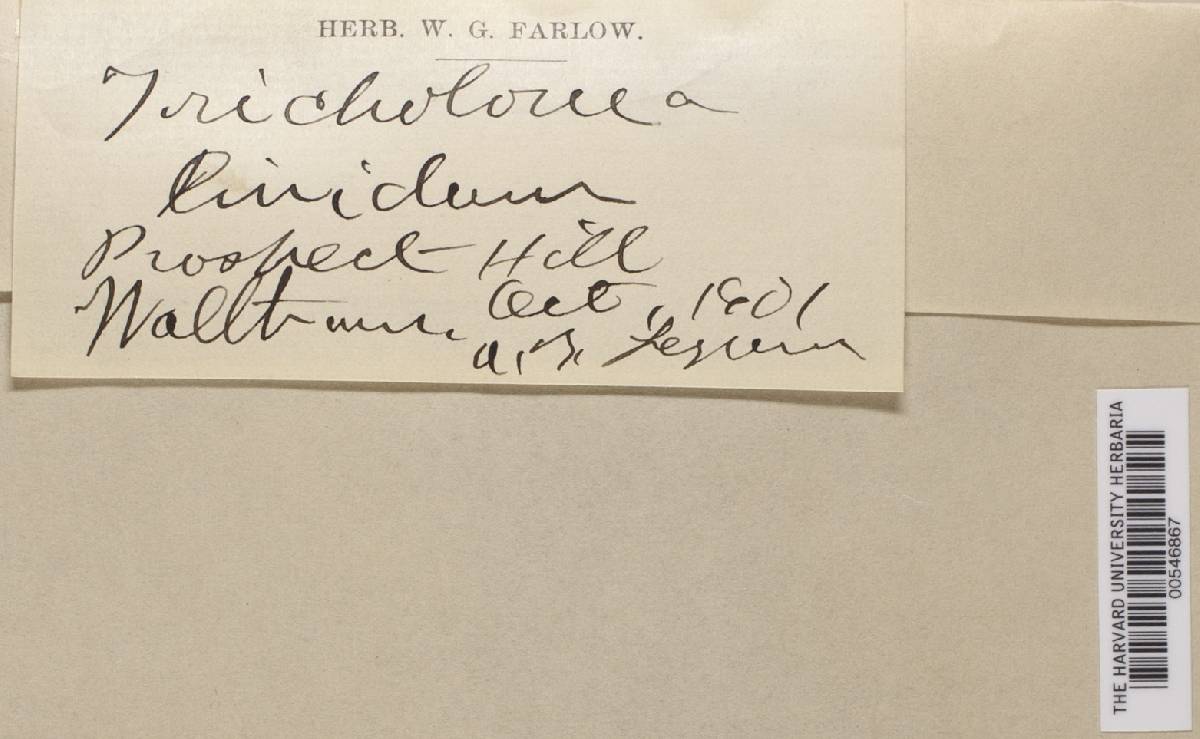 HERB. W. G. FARLOW.
Tricholoma
lividum
Prospect Hill
Walltham. Oct, 1901
a. B. Seymour
THE HARVARD UNIVERSITY HERBARIA
00546867